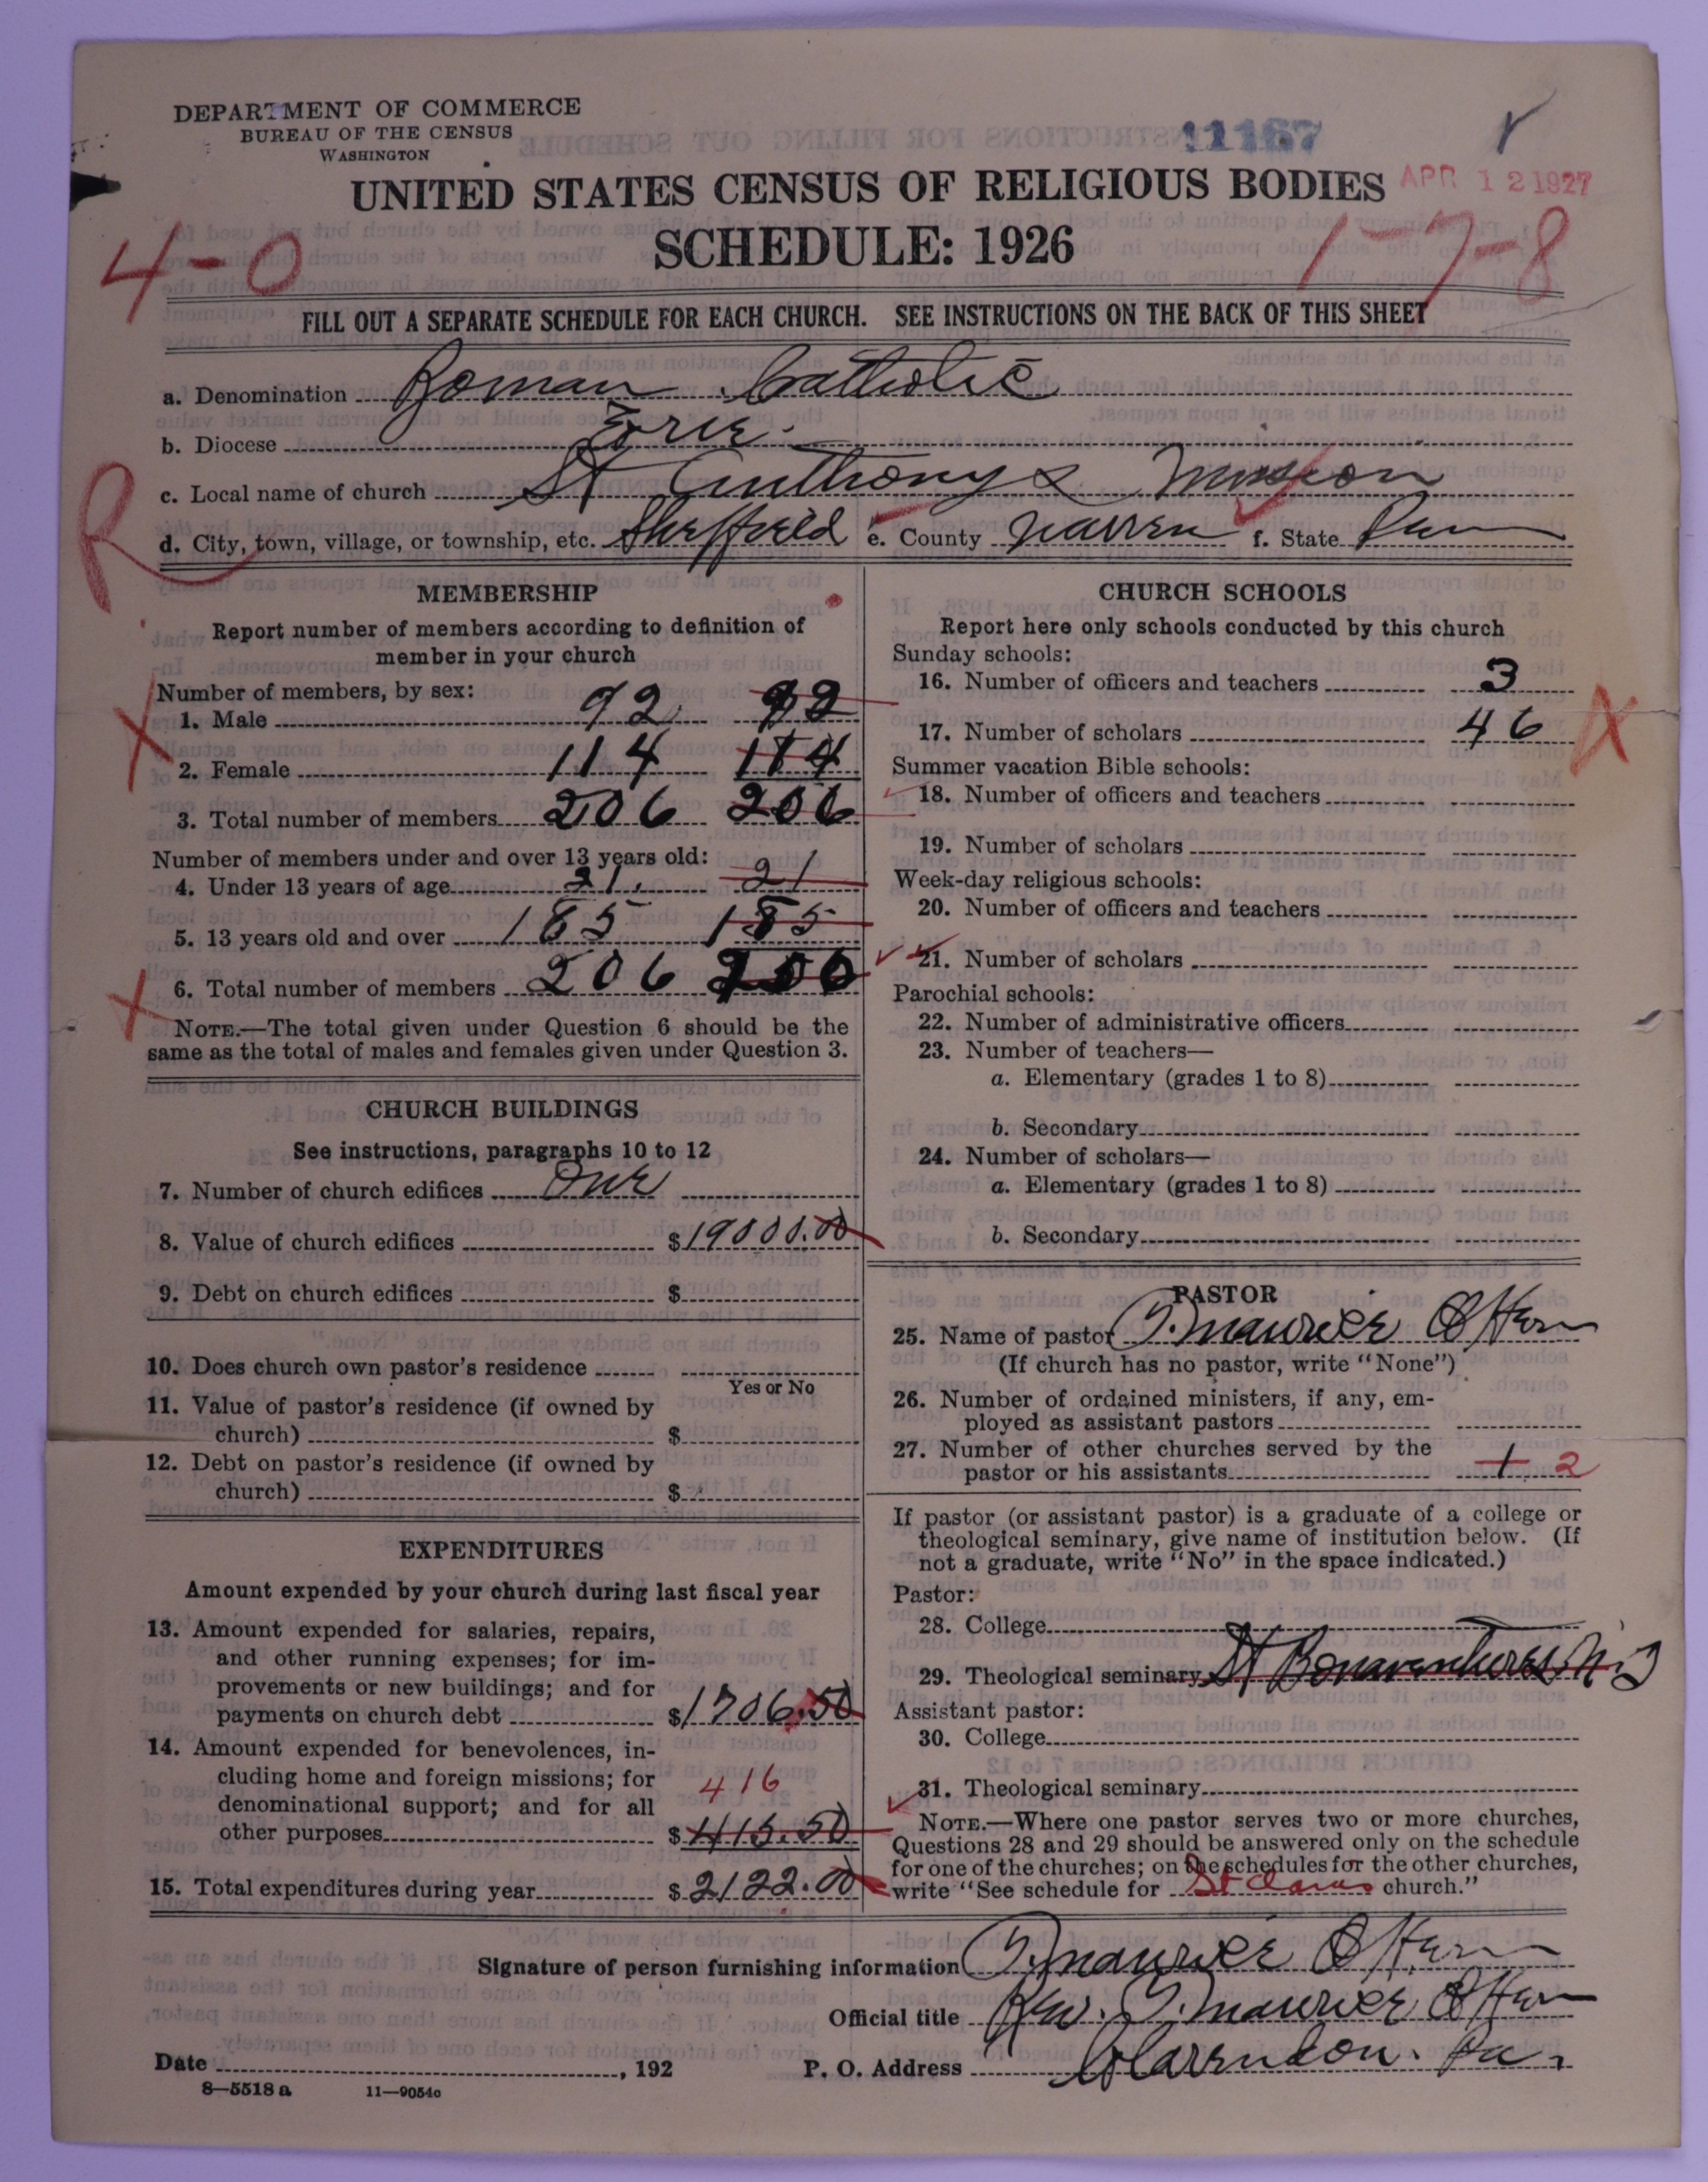 DEPARTMENT OF COMMERCE
BUREAU OF THE CENSUS
WASHINGTON
11167
APR 12 1927
UNITED STATES CENSUS OF RELIGIOUS BODIES
SCHEDULE: 1926
4-0
1-7-8
FILL OUT A SEPARATE SCHEDULE FOR EACH CHURCH. SEE INSTRUCTIONS ON THE BACK OF THIS SHEET
a. Denomination Roman Catholic
b. Diocese Erie
c. Local name of church St Anthonys Mission
d. City, town, village, or township, etc. Sheffield e. County Warren f. State Penn
R
MEMBERSHIP
Report number of members according to definition of
member in your church
Number of members, by sex:
1. Male 92 92
2. Female 114 114
3. Total number of members 206 206
Number of members under and over 13 years old:
4. Under 13 years of age 21. 21
5. 13 years old and over 185 185
6. Total number of members 206 206
NOTE.—The total given under Question 6 should be the
same as the total of males and females given under Question 3.
CHURCH BUILDINGS
See instructions, paragraphs 10 to 12
7. Number of church edifices One
8. Value of church edifices $19000.00
9. Debt on church edifices $
10. Does church own pastor's residence
Yes or No
11. Value of pastor's residence (if owned by
church) $
12. Debt on pastor's residence (if owned by
church) $
EXPENDITURES
Amount expended by your church during last fiscal year
13. Amount expended for salaries, repairs,
and other running expenses; for im-
provements or new buildings; and for
payments on church debt $1706.50
14. Amount expended for benevolences, in-
cluding home and foreign missions; for 416
denominational support; and for all
other purposes $415.50
15. Total expenditures during year $2122.00
CHURCH SCHOOLS
Report here only schools conducted by this church
Sunday schools:
16. Number of officers and teachers 3
17. Number of scholars 46
Summer vacation Bible schools:
18. Number of officers and teachers
19. Number of scholars
Week-day religious schools:
20. Number of officers and teachers
21. Number of scholars
Parochial schools:
22. Number of administrative officers
23. Number of teachers—
a. Elementary (grades 1 to 8)
b. Secondary
24. Number of scholars—
a. Elementary (grades 1 to 8)
b. Secondary
PASTOR
25. Name of pastor T. Maurice
(If church has no pastor, write "None")
26. Number of ordained ministers, if any, em-
ployed as assistant pastors
27. Number of other churches served by the
pastor or his assistants 1 2
If pastor (or assistant pastor) is a graduate of a college or
theological seminary, give name of institution below. (If
not a graduate, write "No" in the space indicated.)
Pastor:
28. College
29. Theological seminary St Bonaventures N.Y
Assistant pastor:
30. College
31. Theological seminary
NOTE.—Where one pastor serves two or more churches,
Questions 28 and 29 should be answered only on the schedule
for one of the churches; on the schedules for the other churches,
write "See schedule for St Claras church."
Signature of person furnishing information T. Maurice
Official title Rev. T. Maurice
Date , 192 P. O. Address Clarendon. Pa.
8—5518 a 11—9054c